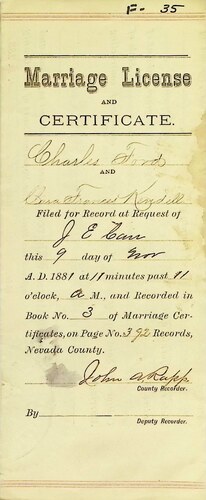 F- 35
Marriage License
AND
CERTIFICATE.
Charles Ford
AND
Frances
Filed for Record at Request of
J E Carr
this 9 day of Nov
A. D. 1881 at 11 minutes past 11
o'clock, A M., and Recorded in
Book No. 3 of Marriage Cer-
tificates, on Page No. 392 Records,
Nevada County.
John A Rapp
County Recorder.
By
Deputy Recorder.